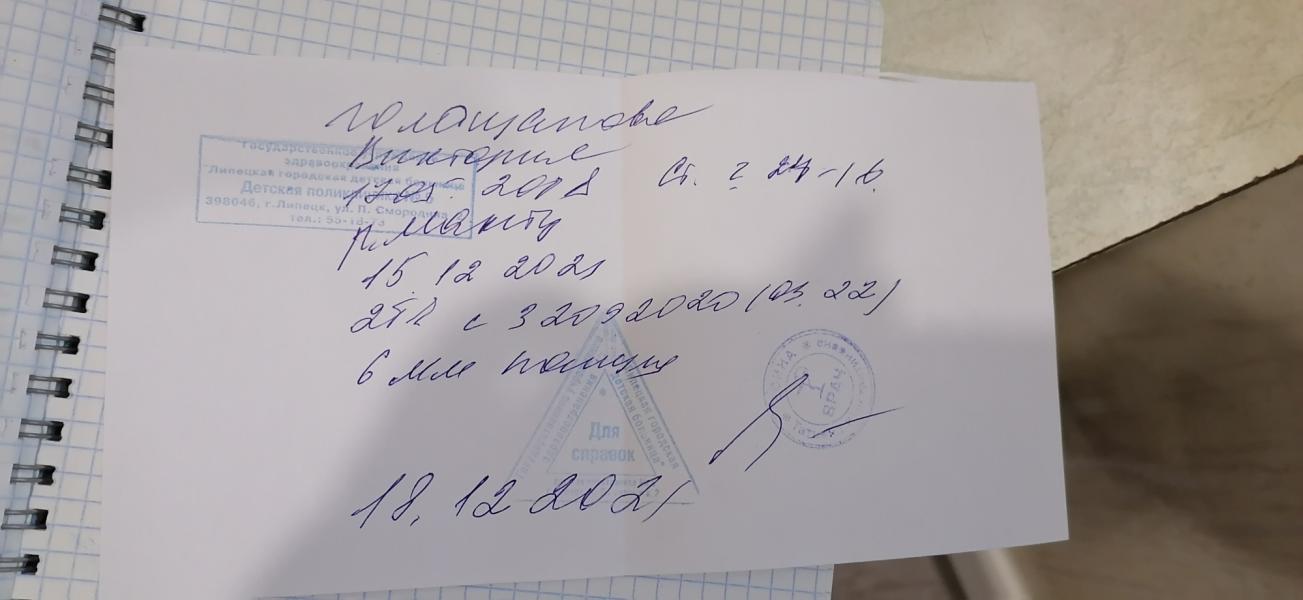 Голощапова
Виктория
17.05.2018 Ст. г 24-16.
р. манту
15.12 2021
2ТЕ с 32092020 (03.22)
6 мм папула
18.12 2021
Государственное
здравоохранения
"Липецкая городская детская больница
Детская поликлиника
398046, г.Липецк, ул. П. Смородина
тел.: 55-18-73
Государственное учреждение
здравоохранения
"Липецкая городская
детская больница"
Для
справок
ВРАЧ